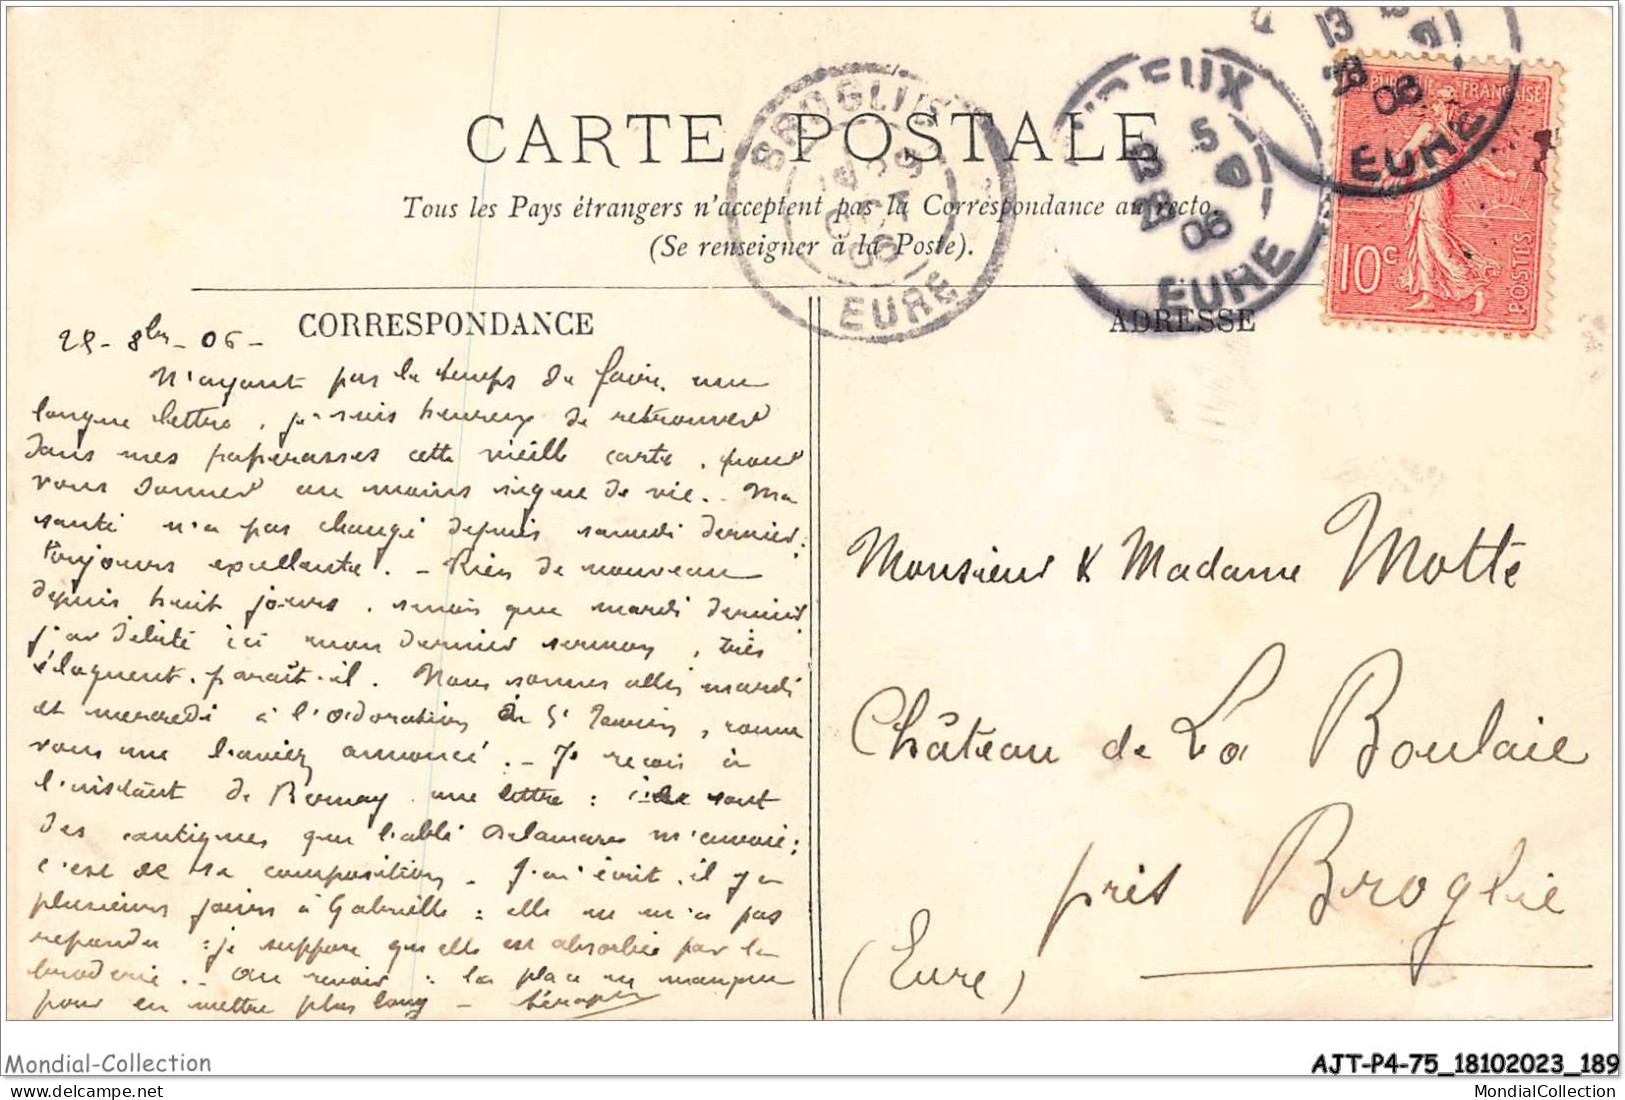 CARTE POSTALE
Tous les Pays étrangers n'acceptent pas la Correspondance au recto.
(Se renseigner à la Poste).
BROGLIE
OCT
06
EURE
REUX
5
13
06
EURE
13
06
EURE
REPUBLIQUE FRANÇAISE
10c
POSTES
CORRESPONDANCE
ADRESSE
8bre - 06 -
N'ayant pas le temps de faire une
longue lettre, je suis heureux de retrouver
dans mes paperasses cette vieille carte, pour
vous donner au moins signe de vie. - Ma
santé n'a pas changé depuis samedi dernier:
toujours excellente. - Rien de nouveau
depuis huit jours, sinon que mardi dernier
j'ai débité ici mon dernier sermon, très
éloquent, paraît-il. Nous sommes allés mardi
et mercredi à l'adoration de St , comme
vous me l'aviez annoncé. - Je reçois à
l'instant de Bernay une lettre: ce sont
des cantiques que l'abbé Delamare m'envoie;
c'est de sa composition. - J'ai écrit il y a
plusieurs jours à Gabrielle: elle ne m'a pas
répondu: je suppose qu'elle est absorbée par la
broderie. - Au revoir: la place me manque
pour en mettre plus long -
Monsieur & Madame Motte
Château de La Boulaie
près Broglie
(Eure)
Mondial-Collection
AJT-P4-75_18102023_189
MondialCollection